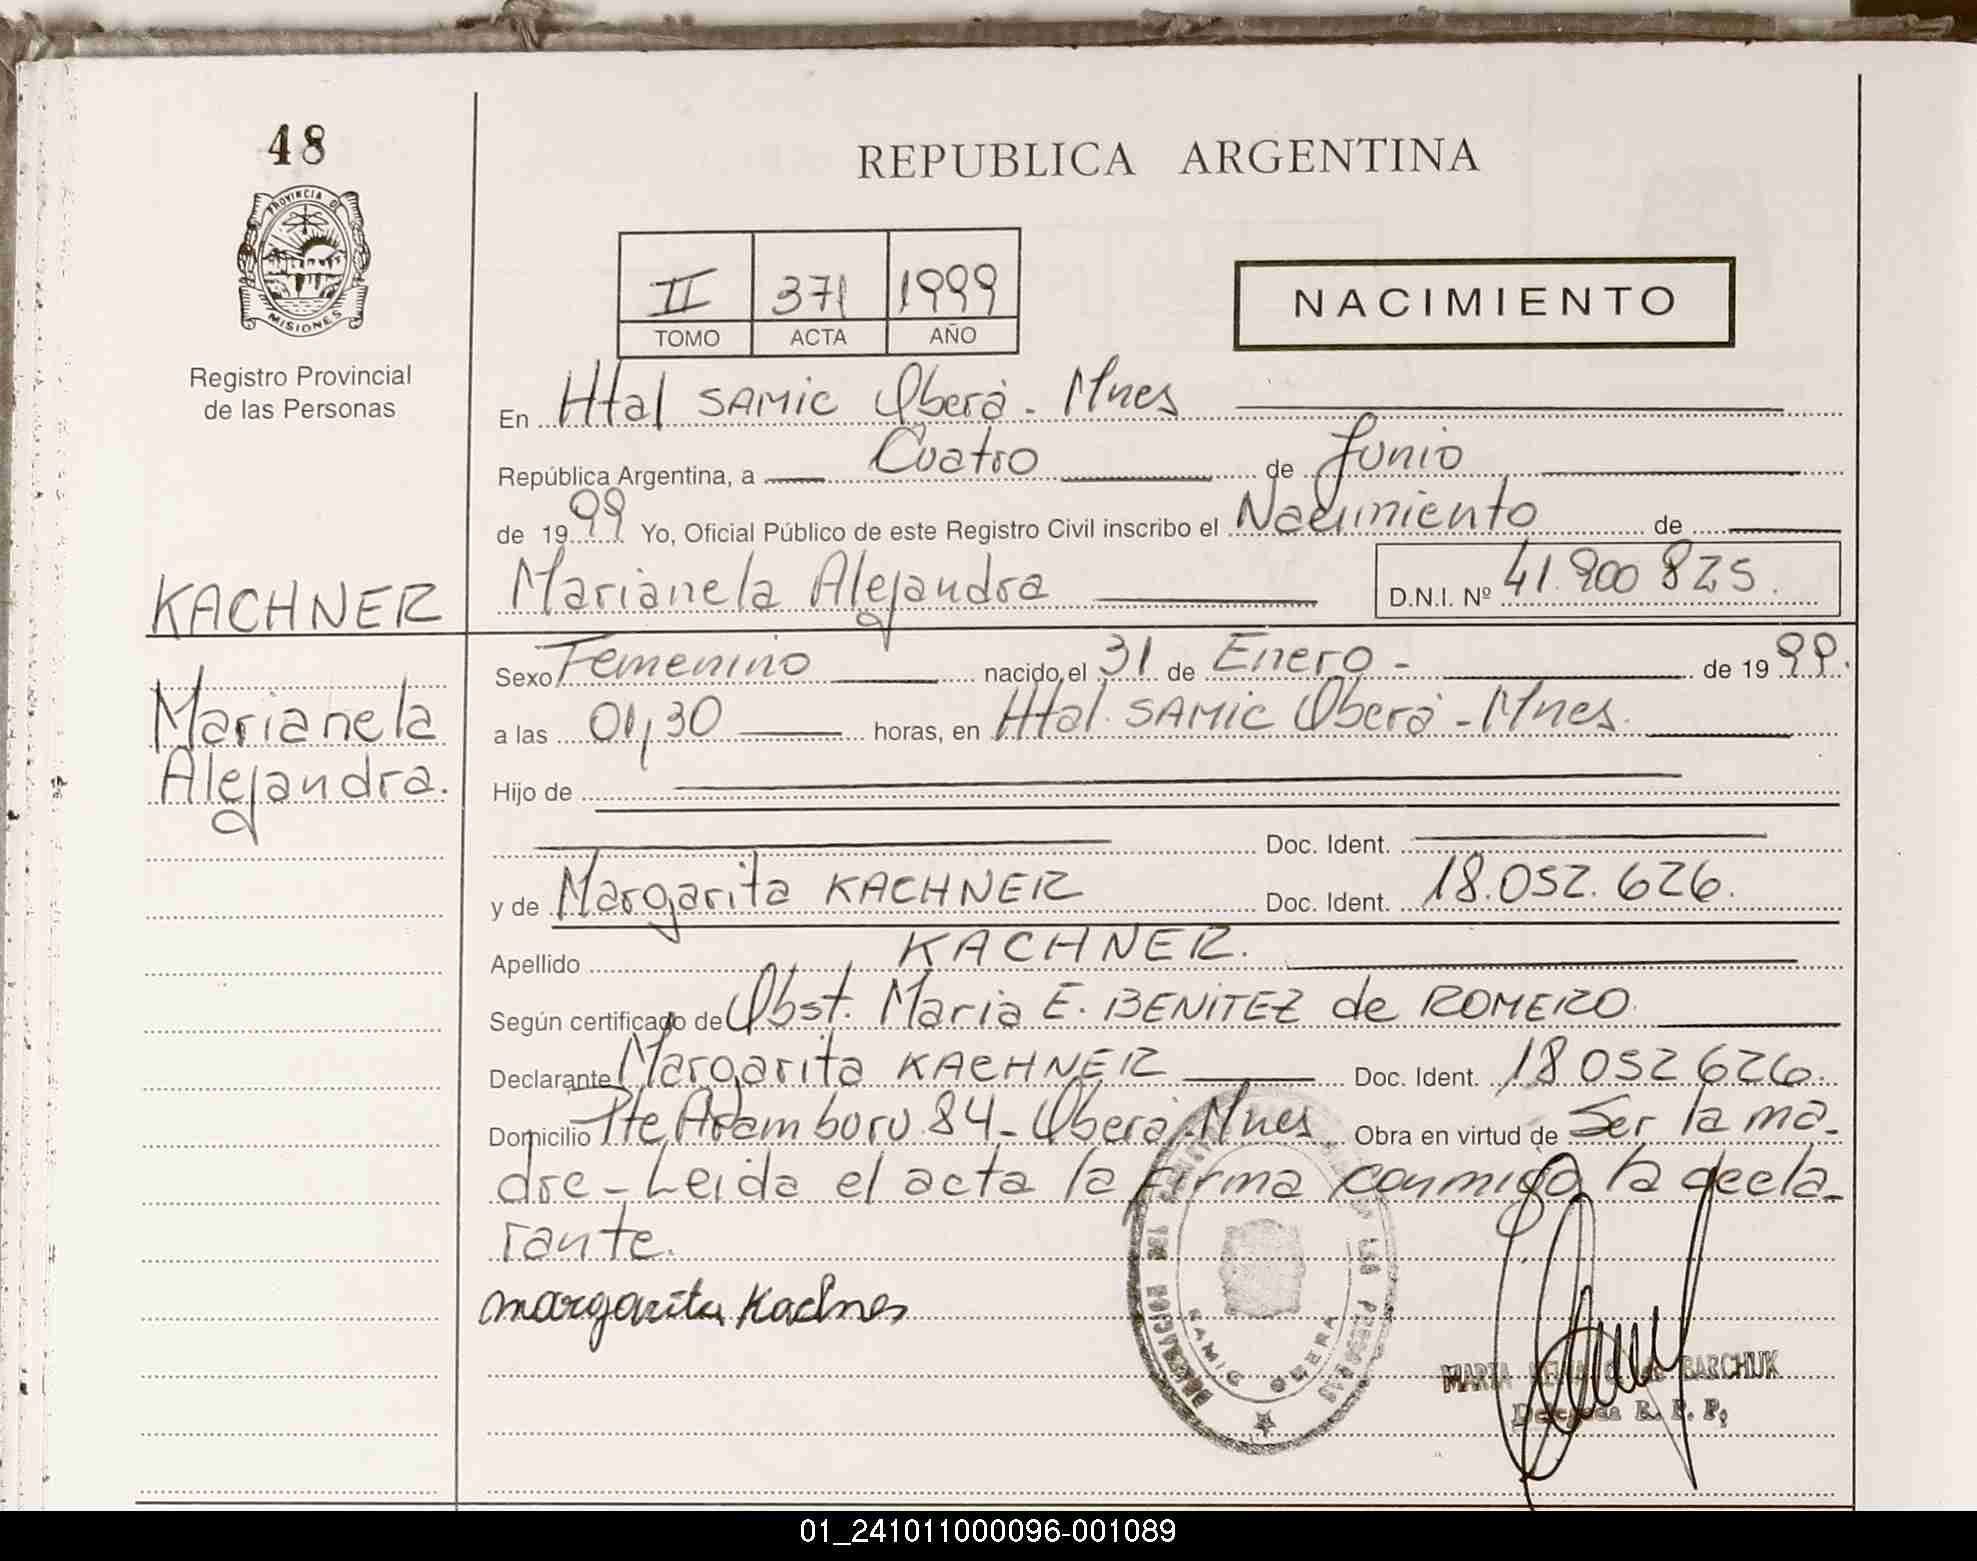 48
PROVINCIA DE
MISIONES
Registro Provincial
de las Personas
REPUBLICA ARGENTINA
II 371 1999
TOMO ACTA AÑO
NACIMIENTO
En Htal SAMIC Oberá - Mnes
República Argentina, a Cuatro de Junio
de 1999 Yo, Oficial Público de este Registro Civil inscribo el Nacimiento de
KACHNER Marianela Alejandra D.N.I. Nº 41.900 825.
Sexo Femenino nacido el 31 de Enero - de 1999.
Marianela
a las 01,30 horas, en Htal. SAMIC Oberá - Mnes.
Alejandra.
Hijo de
Doc. Ident.
y de Margarita KACHNER Doc. Ident. 18.052.626.
Apellido KACHNER.
Según certificado de Obst. Maria E. BENITEZ de ROMERO.
Declarante Margarita KACHNER Doc. Ident. 18 052 626.
Domicilio Pte Aramburu 84 - Oberá - Mnes Obra en virtud de Ser la ma-
dre - Leida el acta la firma conmigo la decla-
rante.
margarita Kachner
LAS PERSONAS
SAMIC OBERA
MARIA BARCHUK
Delegada R. P. P.
01_241011000096-001089